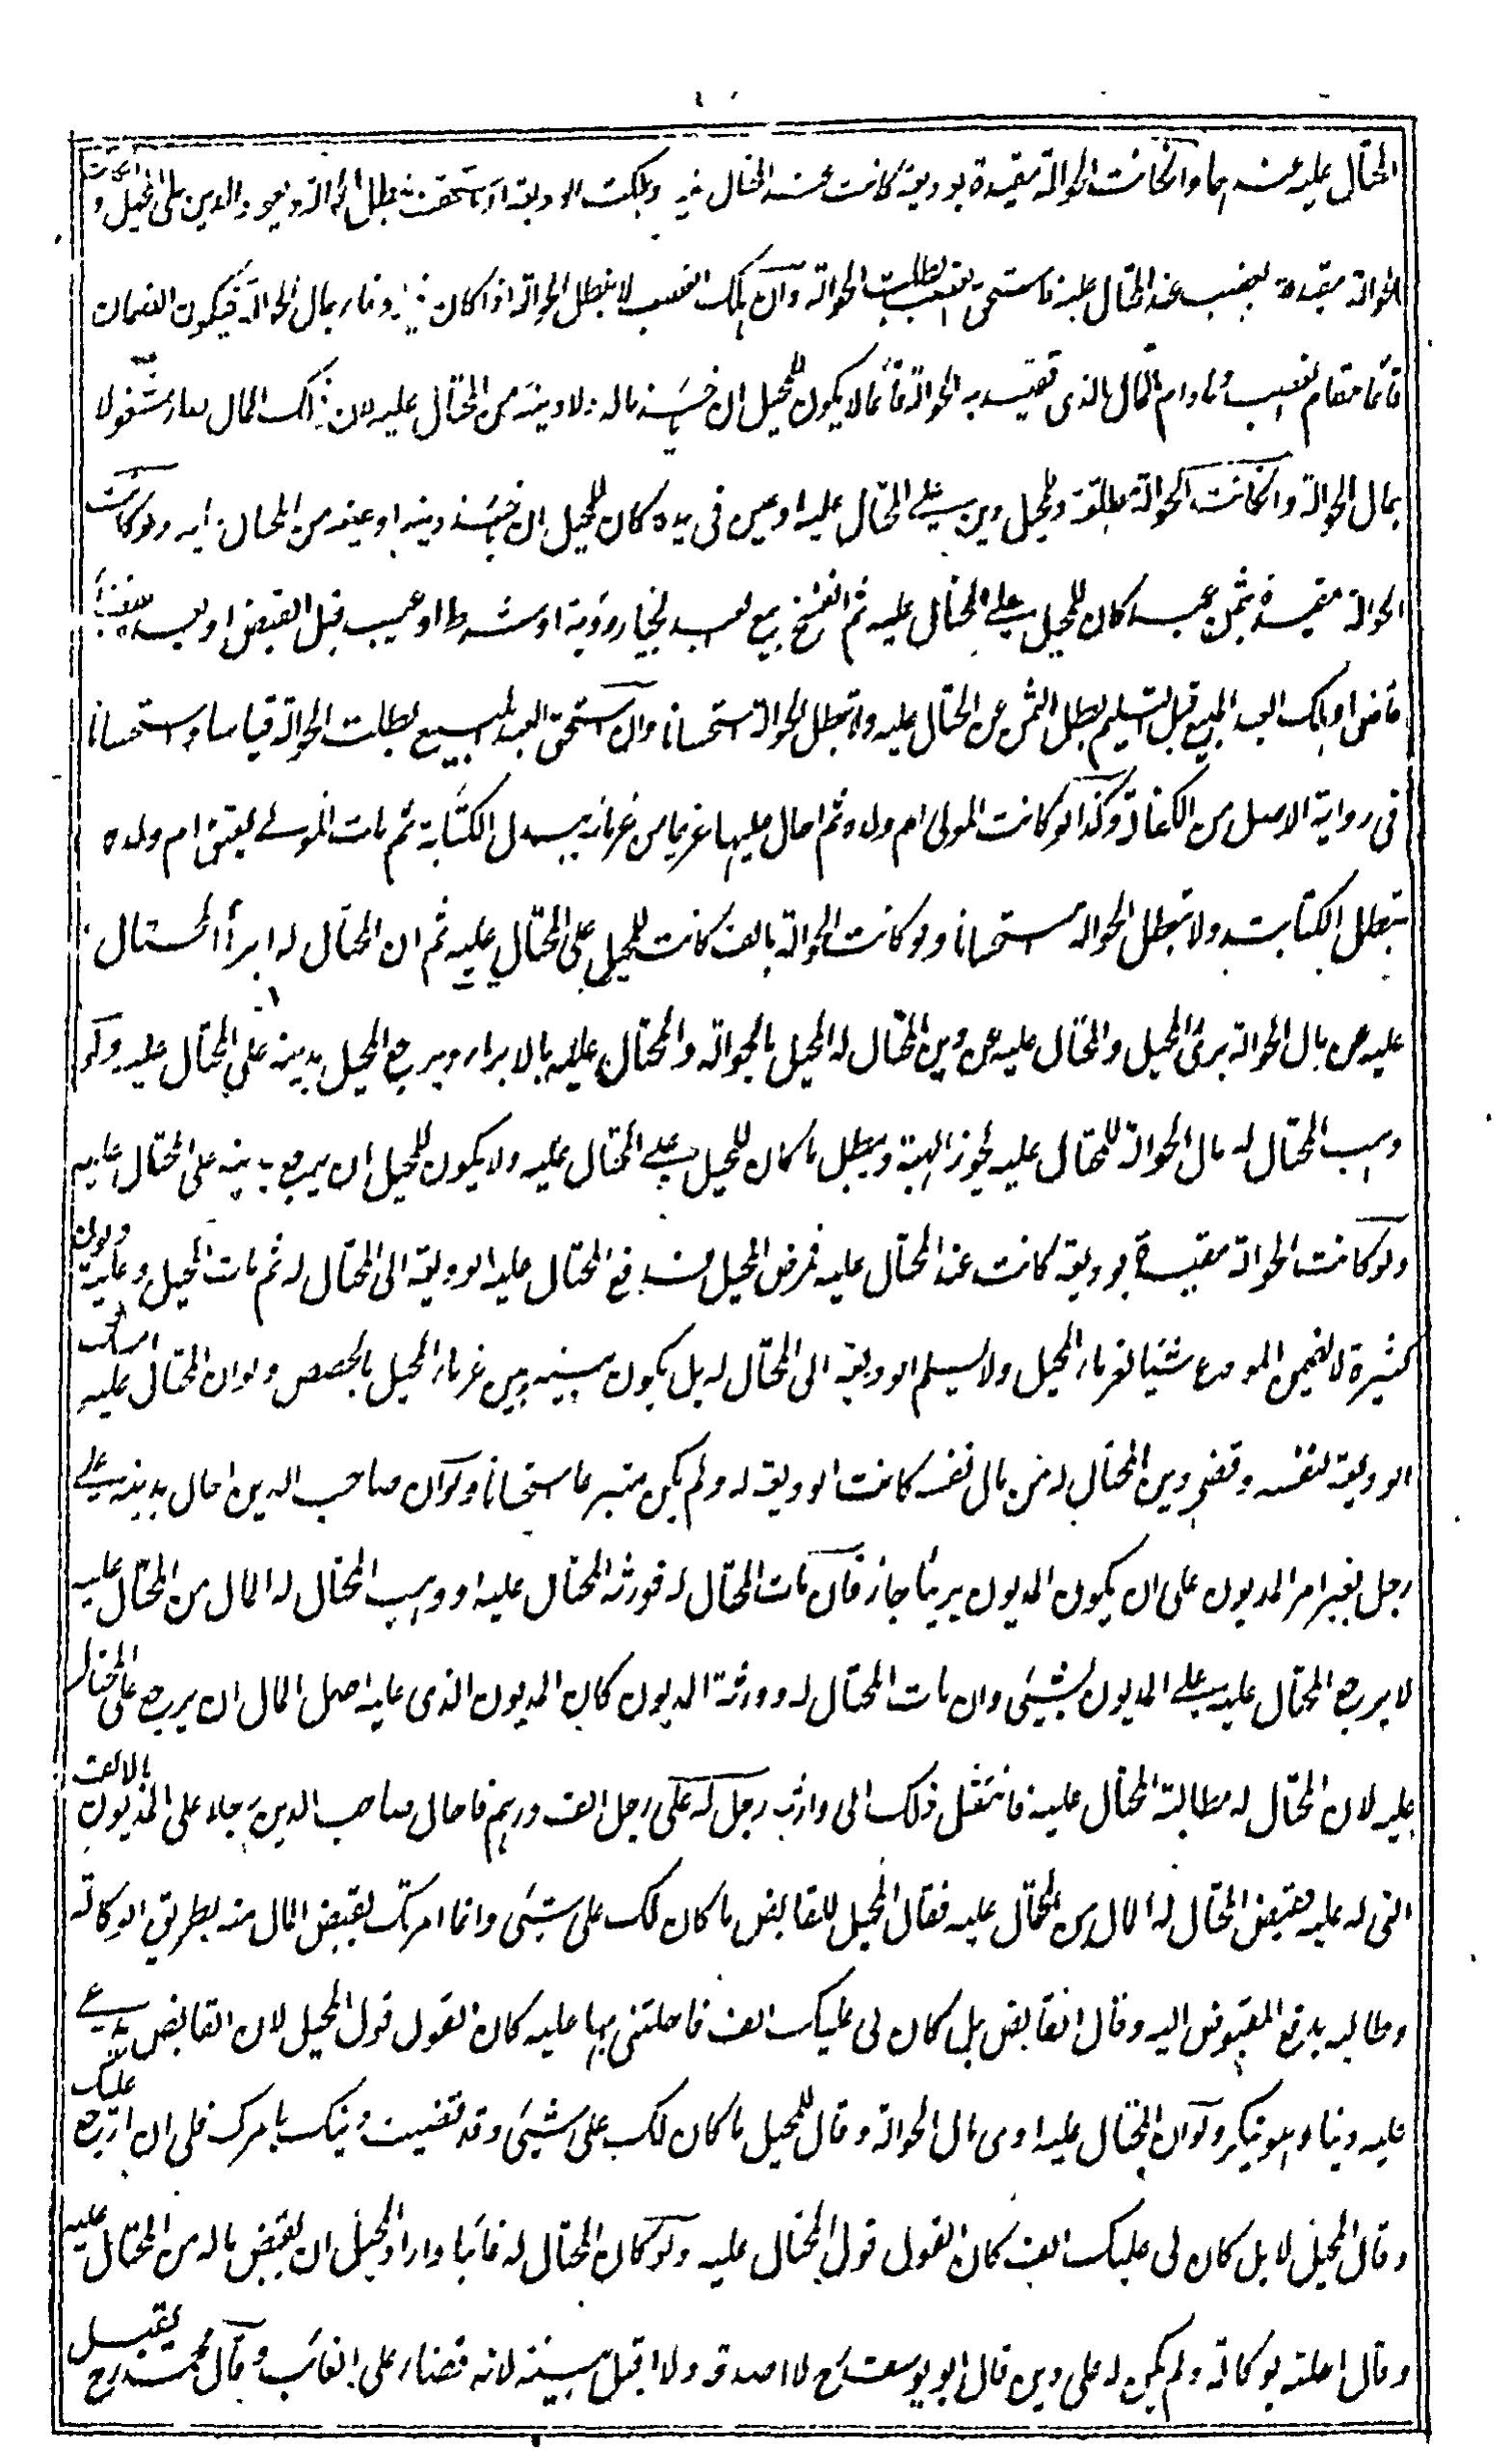 المحتال عليه عندهما وان كانت الحوالة مقيدة بوديعة كانت عند المحتال عليه وهلكت الوديعة او استحقت تبطل الحوالة ويعود الدين على المحيل وان كانت
الحوالة مقيدة بغصب عند المحتال عليه فاستحق الغصب بطلت الحوالة وان هلك الغصب لا تبطل الحوالة اذا كان فيه وفاء بمال الحوالة فيكون الضمان
قائما مقام الغصب وما دام المال الذى تقيد به الحوالة قائما لا يكون للمحيل ان ياخذ ماله ولا دينه من المحتال عليه لان ذلك المال صار مشغولا
بمال الحوالة وان كانت الحوالة مطلقة وللمحيل دين على المحتال عليه او عين فى يده كان للمحيل ان ياخذ دينه او عينه من المحتال عليه ولو كانت
الحوالة مقيدة بثمن عبد كان للمحيل على المحتال عليه ثم انفسخ بيع العبد بخيار رؤية او شرط او عيب قبل القبض او بعده بقضاء
قاض او هلك العبد المبيع قبل التسليم بطل الثمن عن المحتال عليه ولا تبطل الحوالة استحسانا وان استحق العبد المبيع بطلت الحوالة قياسا واستحسانا
فى رواية الاصل من الكفالة وكذا لو كاتب المولى ام ولده ثم احال عليها غريما من غرمائه ببدل الكتابة ثم مات المولى يعتق ام ولده
تبطل الكتابة ولا تبطل الحوالة استحسانا ولو كانت الحوالة بالف كانت للمحيل على المحتال عليه ثم ان المحتال له ابرأ المحتال
عليه عن مال الحوالة برئ المحيل والمحتال عليه عن دين المحتال له المحيل بالحوالة والمحتال عليه بالابراء ويرجع المحيل بدينه على المحتال عليه ولو
وهب المحتال له مال الحوالة للمحتال عليه يجوز الهبة ويبطل ما كان للمحيل على المحتال عليه ولا يكون للمحيل ان يرجع بدينه على المحتال عليه
ولو كانت الحوالة مقيدة بوديعة كانت عند المحتال عليه فمرض المحيل فدفع المحتال عليه الوديعة الى المحتال له ثم مات المحيل وعليه ديون
كثيرة لا يضمن المودع شيئا لغرماء المحيل ولا يسلم الوديعة الى المحتال له بل يكون بينه وبين غرماء المحيل بالحصص ولو ان المحتال عليه امسك
الوديعة لنفسه وقضى دين المحتال له من مال نفسه كانت الوديعة له ولم يكن متبرعا استحسانا ولو ان صاحب الدين احال بدينه على
رجل بغير امر المديون على ان يكون المديون بريئا جاز فان مات المحتال له فورثه المحتال عليه او وهب المحتال له المال من المحتال عليه
لا يرجع المحتال عليه على المديون بشيئ وان مات المحتال له وورثه المديون كان المديون الذى عليه اصل المال ان يرجع على المحتال
عليه لان المحتال له مطالبة المحتال عليه فانتقل ذلك الى وارثه رجل له على رجل الف درهم فاحال صاحب الدين رجلا على المديون بالالف
التى له عليه فقبض المحتال له المال من المحتال عليه فقال المحيل للقابض ما كان لك على شيئ وانما امرتك بقبض المال منه بطريق الوكالة
وطالبه بدفع المقبوض اليه وقال القابض بل كان لى عليك الف فاحلتنى بها عليه كان القول قول المحيل لان القابض يدعى
عليه دينا وهو ينكر ولو ان المحتال عليه ادى مال الحوالة وقال للمحيل ما كان لك على شيئ وقد قضيت دينك بامرك فلى ان ارجع عليك
وقال المحيل لا بل كان لى عليك الف كان القول قول المحتال عليه ولو كان المحتال له غائبا واراد المحيل ان يقبض ماله من المحتال عليه
وقال احلته بوكالة ولم يكن له على دين قال ابو يوسف رح لا اصدقه ولا اقبل بينته لانه قضاء على الغائب وقال محمد رح يقبل